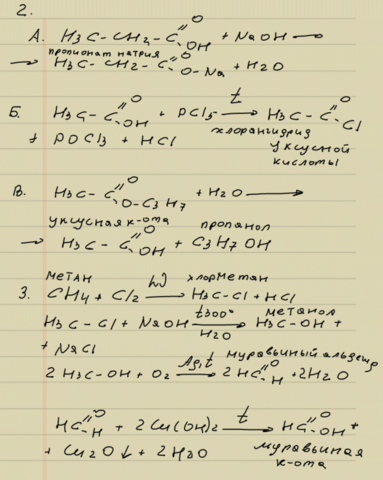 2.
А. H3C-CH2-C(=O)OH + NaOH →
пропионат натрия
→ H3C-CH2-C(=O)O-Na + H2O
Б. H3C-C(=O)OH + PCl5 –t→ H3C-C(=O)Cl
хлорангидрид
+ POCl3 + HCl уксусной
кислоты
В. H3C-C(=O)O-C3H7 + H2O →
уксусная к-ота пропанол
→ H3C-C(=O)OH + C3H7OH
метан hν хлорметан
3. CH4 + Cl2 → H3C-Cl + HCl
t300° метанол
H3C-Cl + NaOH → H3C-OH +
H2O
+ NaCl
Ag,t муравьиный альдегид
2H3C-OH + O2 → 2HC(=O)H + 2H2O
HC(=O)H + 2Cu(OH)2 –t→ HC(=O)OH +
+ Cu2O↓ + 2H2O муравьиная
к-ота